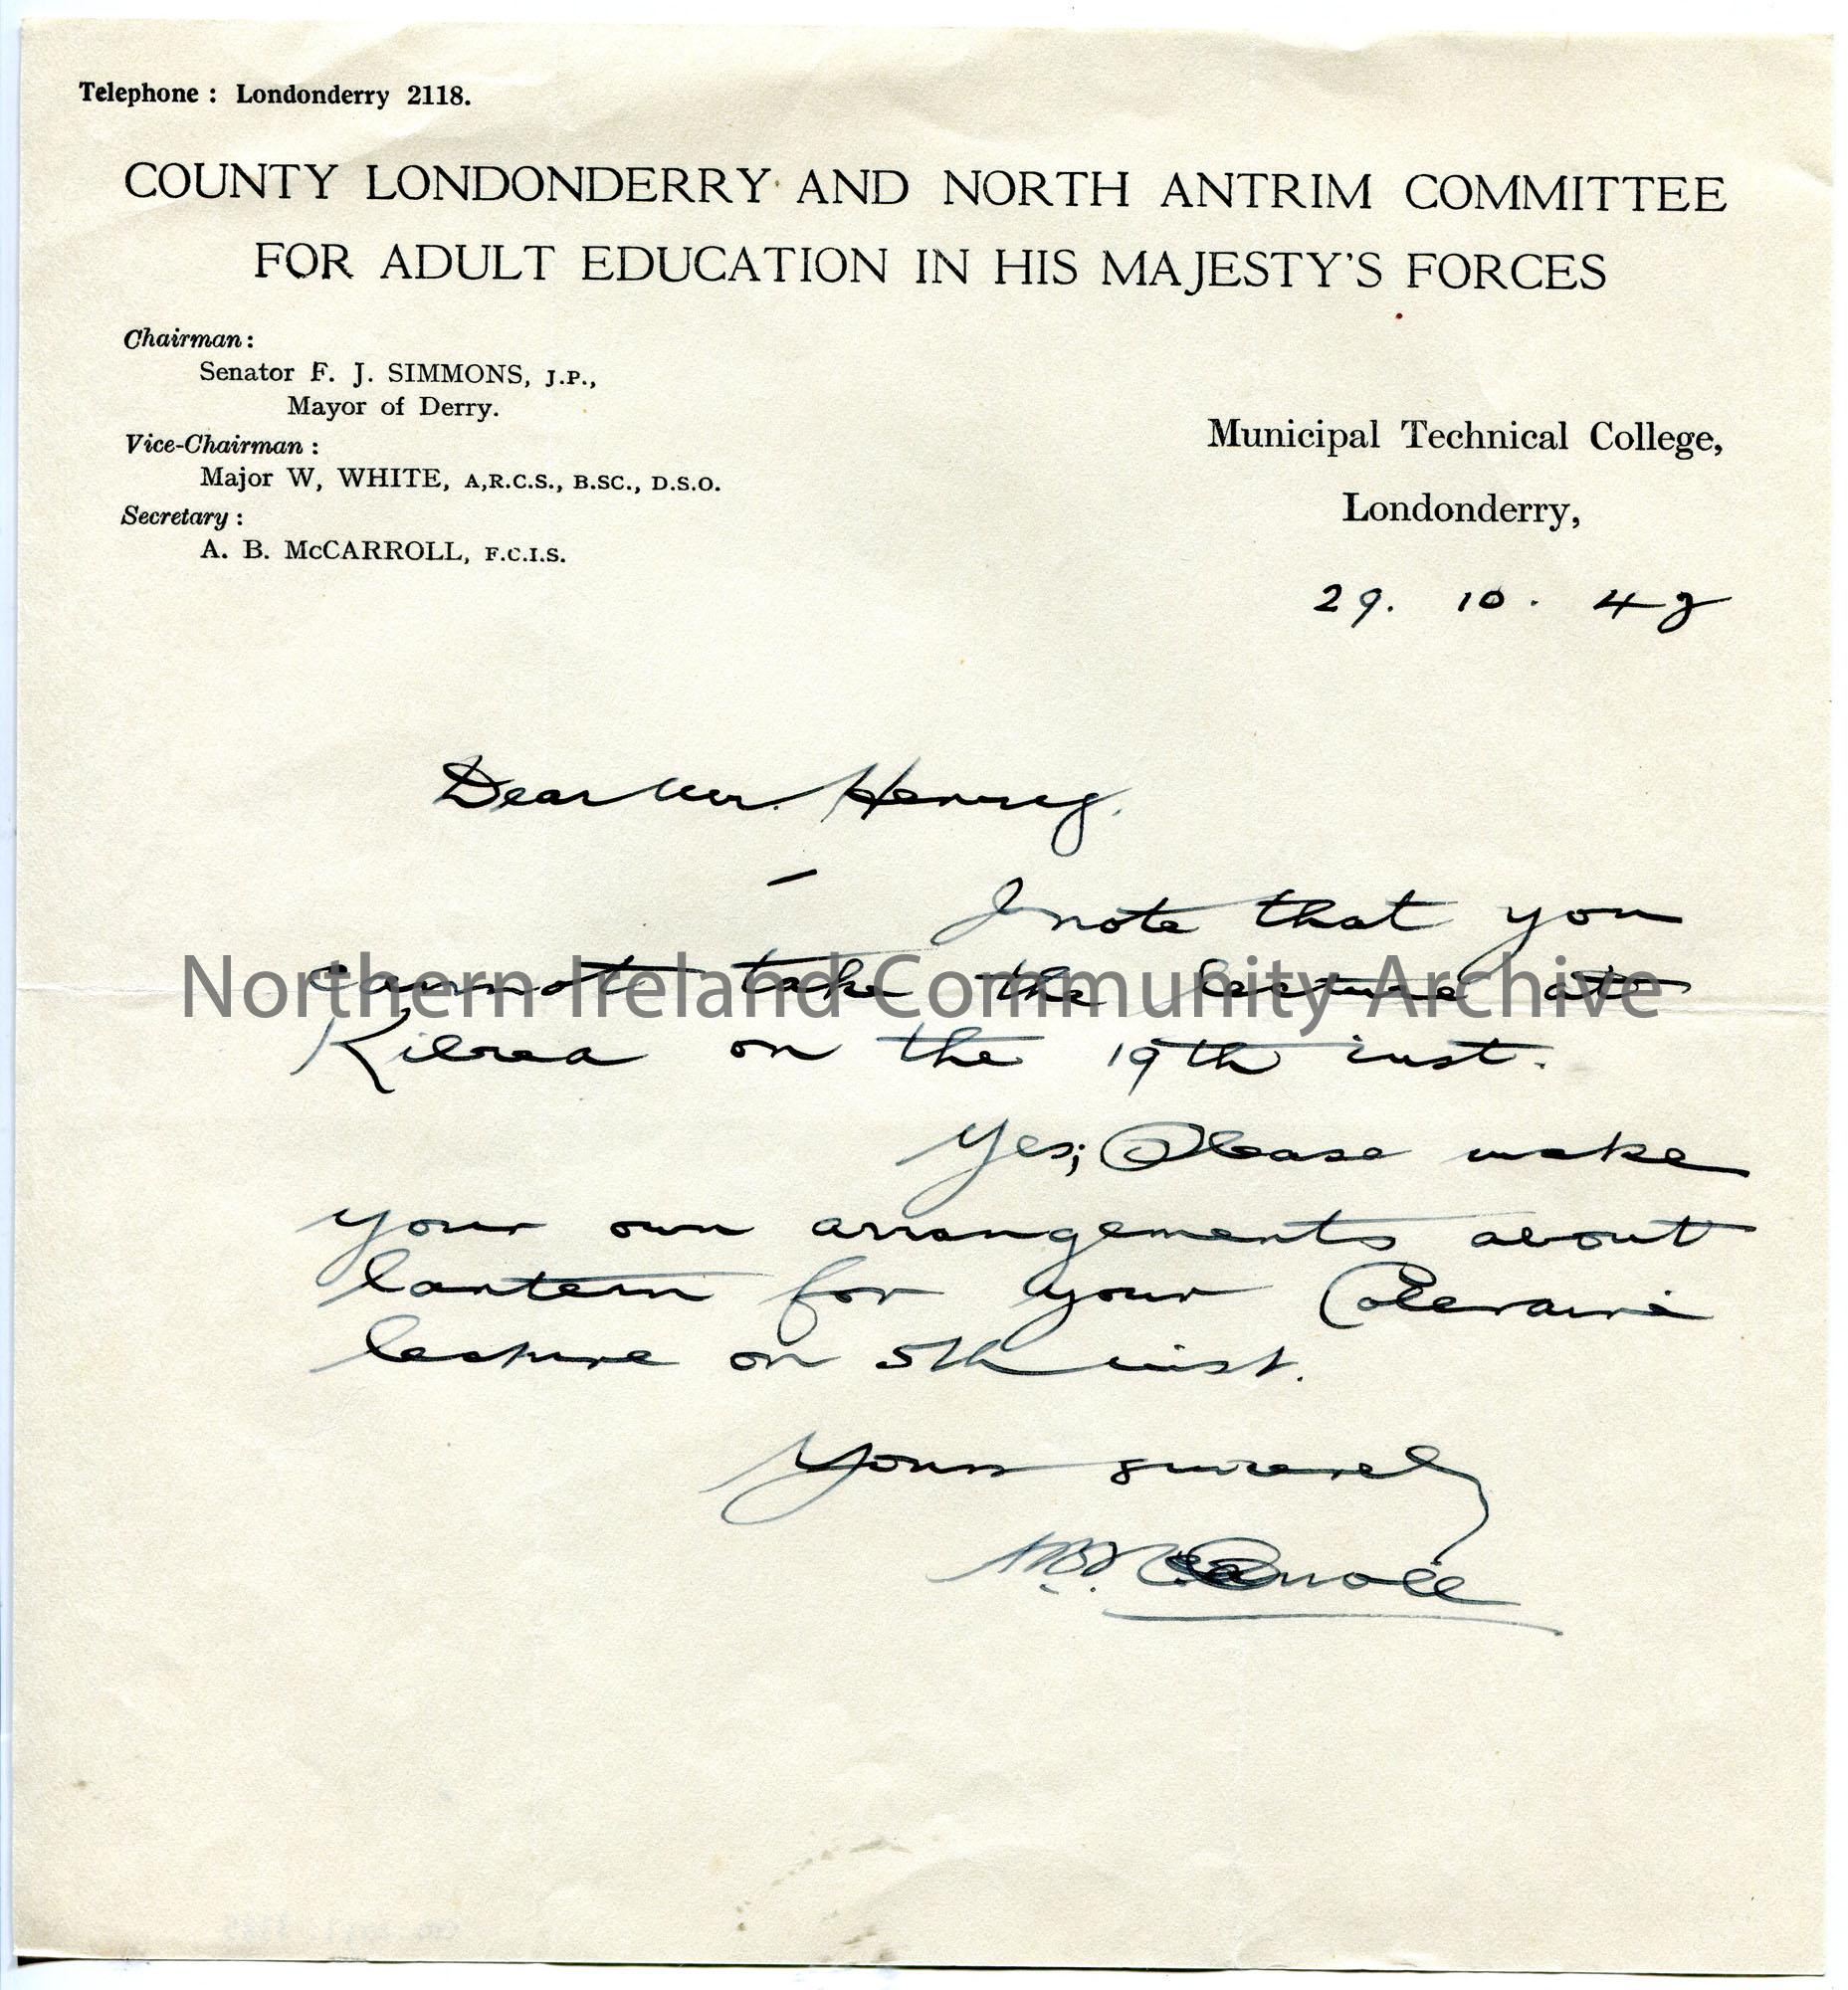 Telephone : Londonderry 2118.
COUNTY LONDONDERRY AND NORTH ANTRIM COMMITTEE
FOR ADULT EDUCATION IN HIS MAJESTY'S FORCES
Chairman :
Senator F. J. SIMMONS, J.P.,
Mayor of Derry.
Vice-Chairman :
Major W, WHITE, A,R.C.S., B.SC., D.S.O.
Secretary :
A. B. McCARROLL, F.C.I.S.
Municipal Technical College,
Londonderry,
29. 10. 42
Dear Mr. Henry.
I note that you
cannot take the lecture at
Kilrea on the 19th inst.
Yes; Please make
your own arrangements about
lantern for your Coleraine
lecture on 5th inst.
Yours sincerely
AB McCarroll
Northern Ireland Community Archive